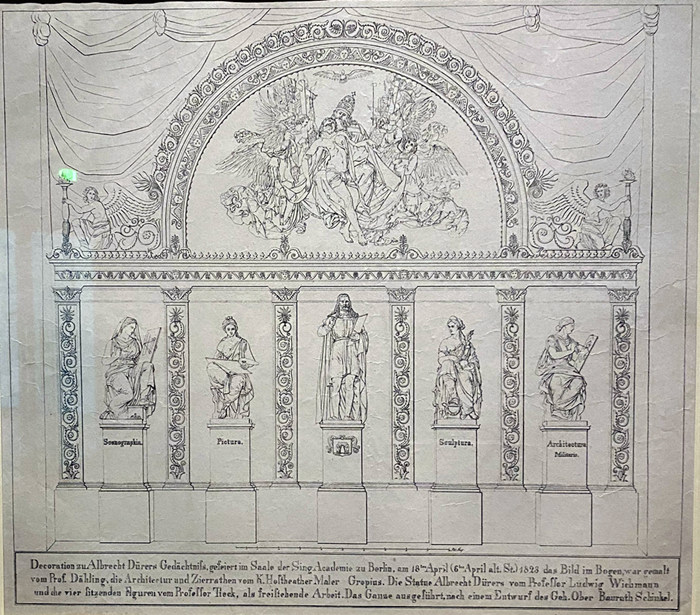 Scenographia.
Pictura.
Sculptura.
Architectura
Militaris.
Decoration zu Albrecht Dürers Gedächtniſs, gefeiert im Saale der Sing Academie zu Berlin, am 18ten April (6ten April alt. St.) 1828 das Bild im Bogen, war gemalt
vom Prof. Dähling, die Architectur und Zierrathen vom K. Hoftheather Maler Gropius. Die Statue Albrecht Dürers vom Profeſſor Ludwig Wichmann
und die vier ſitzenden Figuren vom Profeſſor Tieck, als freiſtehende Arbeit. Das Ganze ausgeführt, nach einem Entwurf des Geh. Ober Baurath Schinkel.